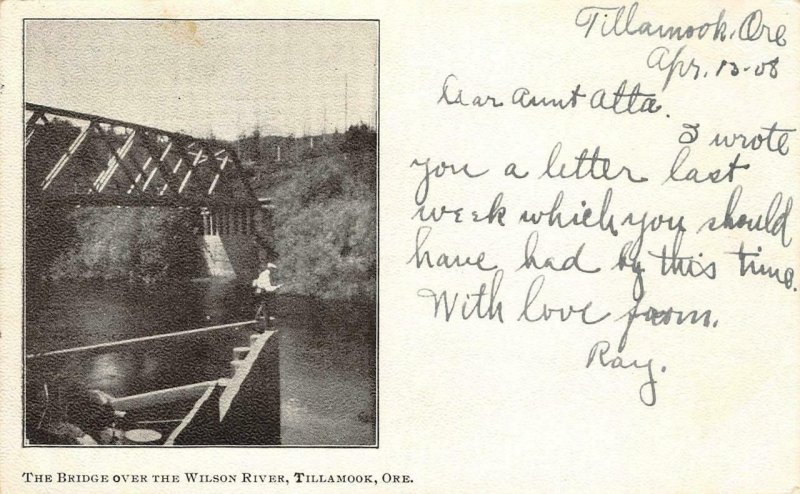 Tillamook, Ore
Apr. 13-08
Dear Aunt Atta.
I wrote
you a letter last
week which you should
have had by this time.
With love from.
Ray.
THE BRIDGE OVER THE WILSON RIVER, TILLAMOOK, ORE.